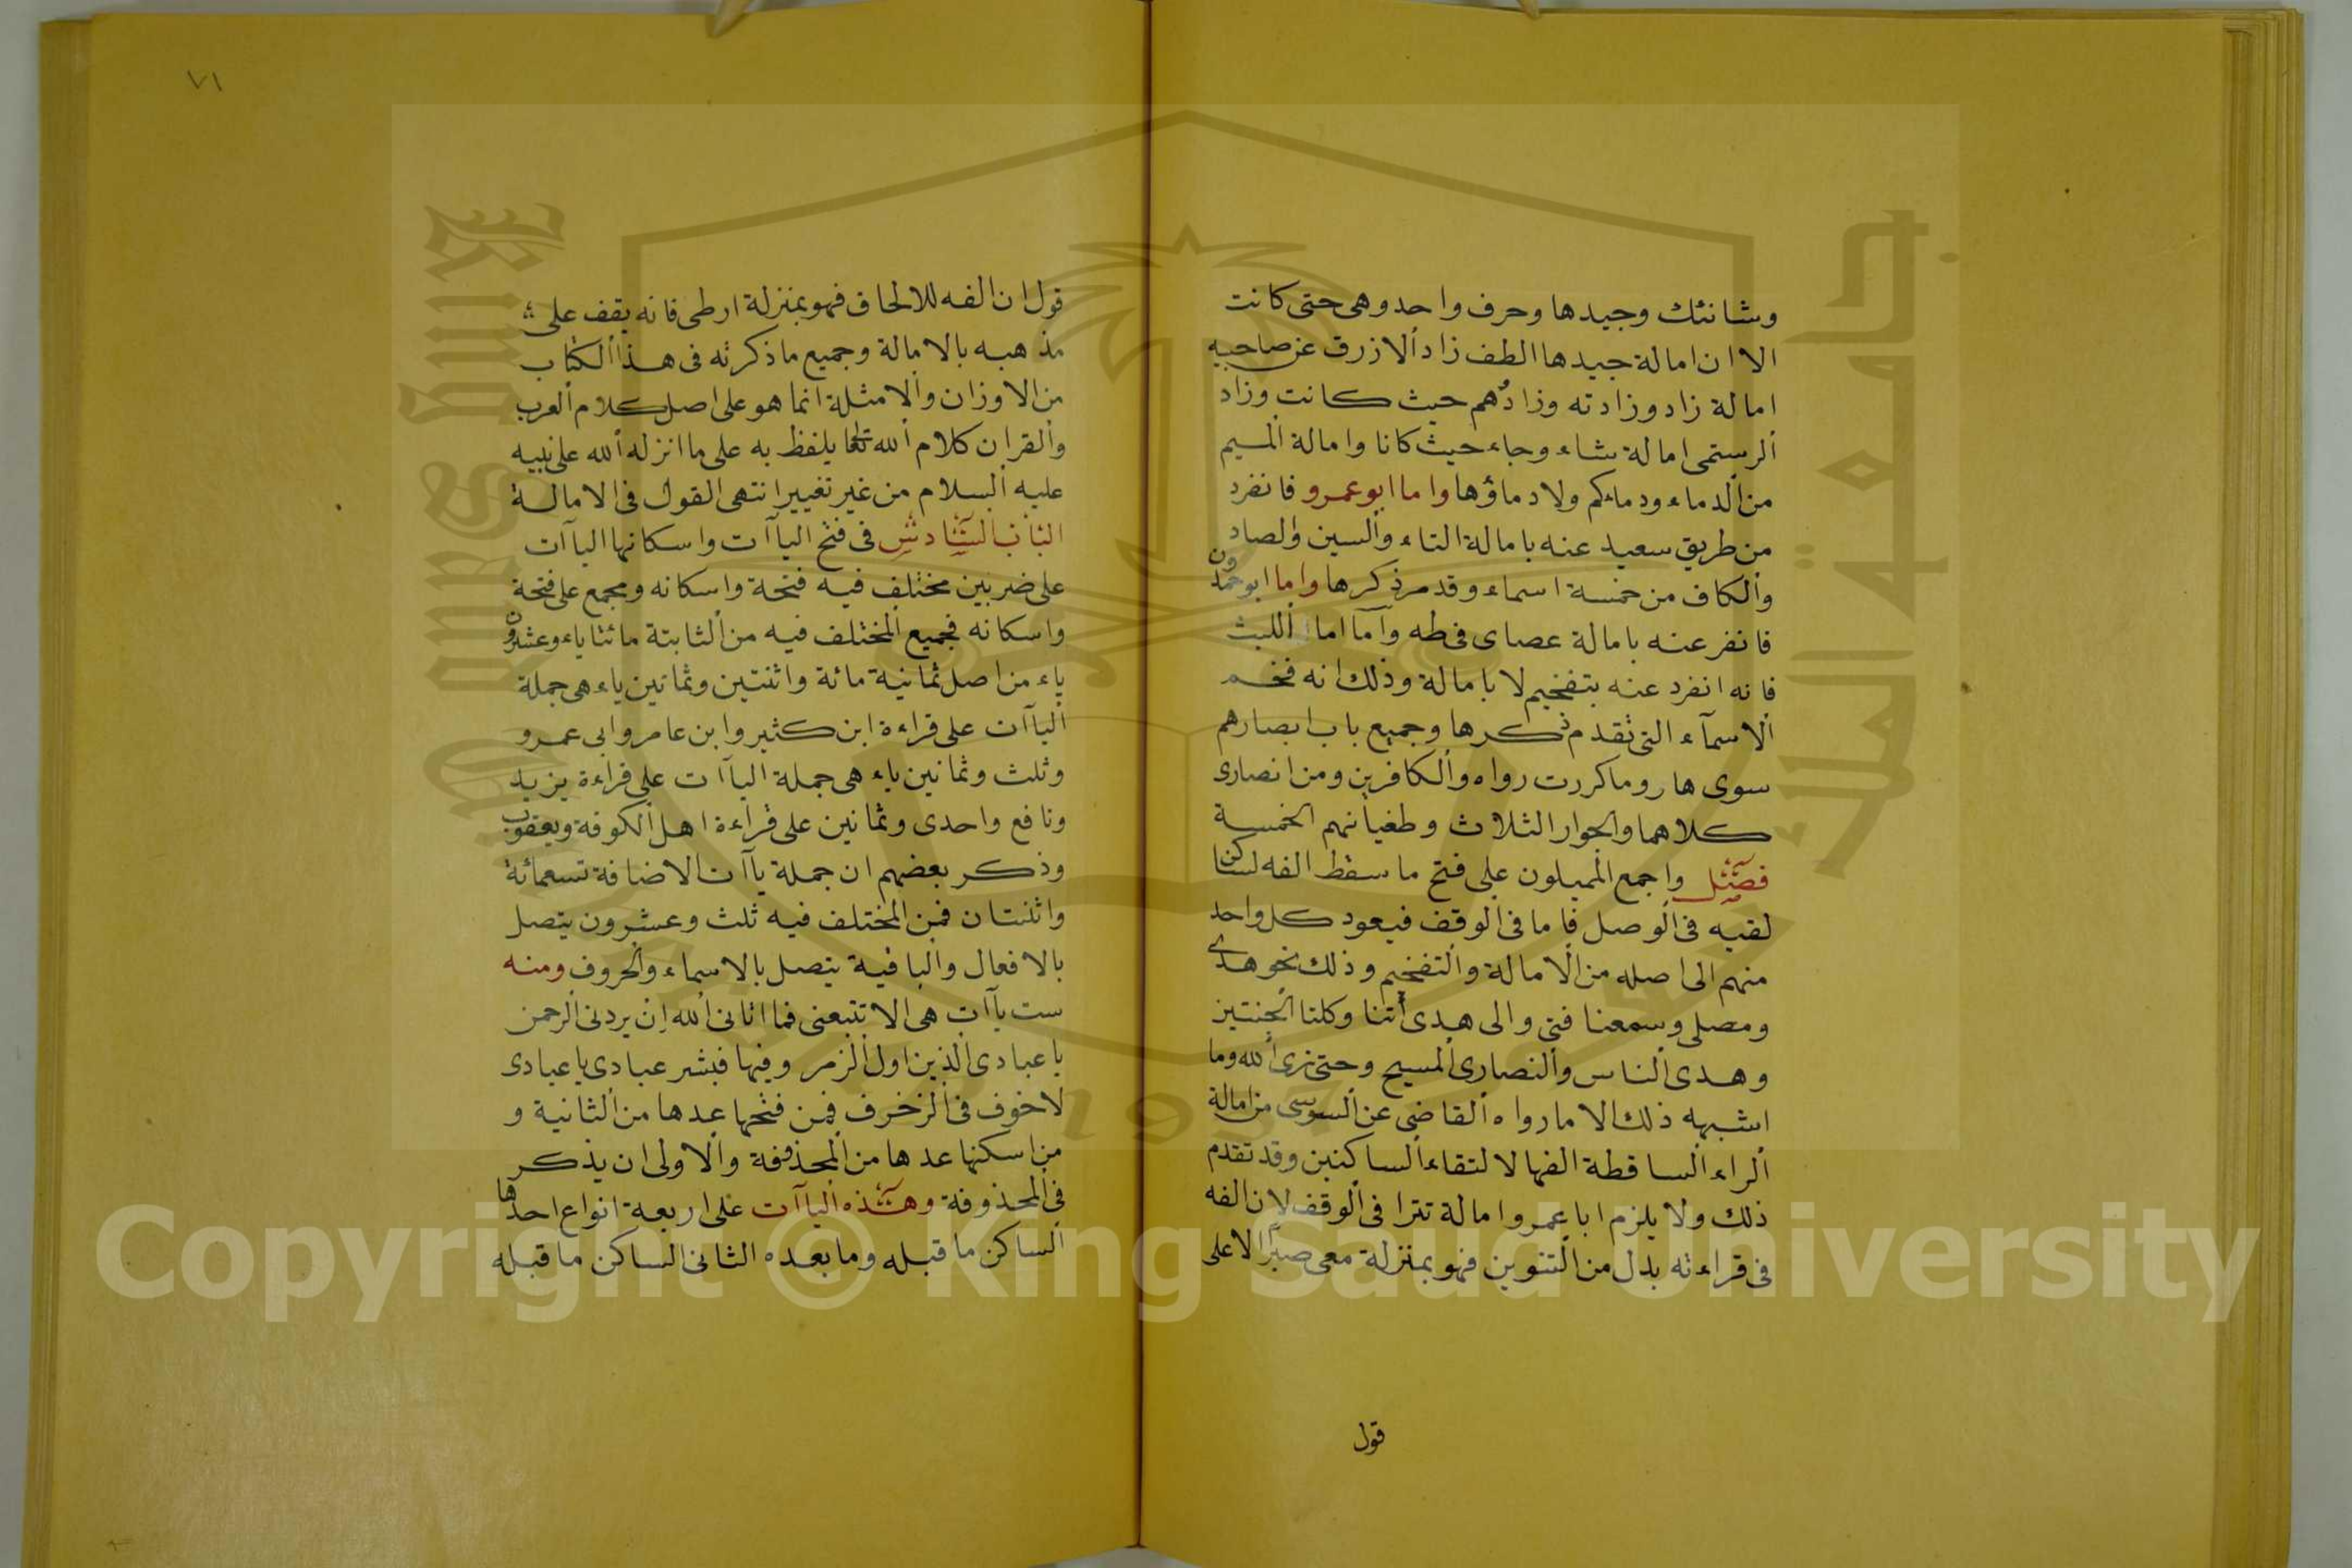 وشانئك وجيدها وحرف واحد وهى حتى كانت
الا ان امالة جيدها الطف زاد الازرق عن صاحبيه
امالة زاد وزادته وزادهم حيث كانت وزاد
الرستمى امالة شاء وجاء حيث كانا وامالة الميم
من الدماء ودمائكم ولا دماؤها واما ابو عمرو فانفرد
من طريق سعيد عنه بامالة التاء والسين والصاد
والكاف من خمسة اسماء وقد مر ذكرها واما ابو حمدون
فانفر عنه بامالة عصاى فى طه وآما اما الليث
فانه انفرد عنه بتفخيم لا بامالة وذلك انه فخم
الاسمآء التى تقدم ذكرها وجميع باب ابصارهم
سوى هار وما كررت رواه والكافرين ومن انصارى
كلاهما والجوار الثلاث وطغيانهم الخمسة
فصل واجمع المميلون على فتح ما سقط الفه لساكن
لقيه فى الوصل فاما فى الوقف فيعود كل واحد
منهم الى اصله من الامالة والتفخيم وذلك نحو هدى
ومصلى وسمعنا فتى والى هدى أتنا وكلتا الجنتين
وهدى الناس والنصارى المسيح وحتى نرى الله وما
اشبهه ذلك الا ما رواه القاضى عن السوسى من امالة
الراء الساقطة الفها لالتقاء الساكنين وقد تقدم
ذلك ولا يلزم ابا عمرو امالة تترا فى الوقف لان الفه
فى قراءته بدل من التنوين فهو بمنزلة معى صبرًا لا على
قول
٧١
قول ان الفه للالحاق فهو بمنزلة ارطى فانه يقف على
مذهبه بالامالة وجميع ما ذكرته فى هذا الكتاب
من الاوزان والامثلة انما هو على اصل كلام العرب
والقران كلام الله تعالى يلفظ به على ما انزله الله على نبيه
عليه السلام من غير تغيير انتهى القول فى الامالة
الباب السادس فى فتح اليآات واسكانها اليآات
على ضربين مختلف فيه فتحة واسكانه ومجمع على فتحة
واسكانه فجميع المختلف فيه من الثابتة مائتا ياء وعشرون
ياء من اصل ثمانية مائة واثنتين وثمانين ياء هى جملة
اليآات على قراءة ابن كثير وابن عامر وابى عمرو
وثلث وثمانين ياء هى جملة اليآات على قراءة يزيد
ونافع واحدى وثمانين على قراءة اهل الكوفة ويعقوب
وذكر بعضهم ان جملة يآات الاضافة تسعمائة
واثنتان فمن المختلف فيه ثلث وعشرون يتصل
بالافعال والباقية يتصل بالاسماء والحروف ومنه
ست يآات هى الا تتبعنى فما اتانى الله ان يردنى الرحمن
يا عبادى الذين اول الزمر وفيها فبشر عبادى يا عبادى
لا خوف فى الزخرف فمن فتحها عدها من الثانية و
من اسكنها عدها من المحذففة والاولى ان يذكر
فى المحذوفة وهذه اليآات على اربعة انواع احدها
الساكن ما قبله وما بعده الثانى الساكن ما قبله
Copyright © King Saud University